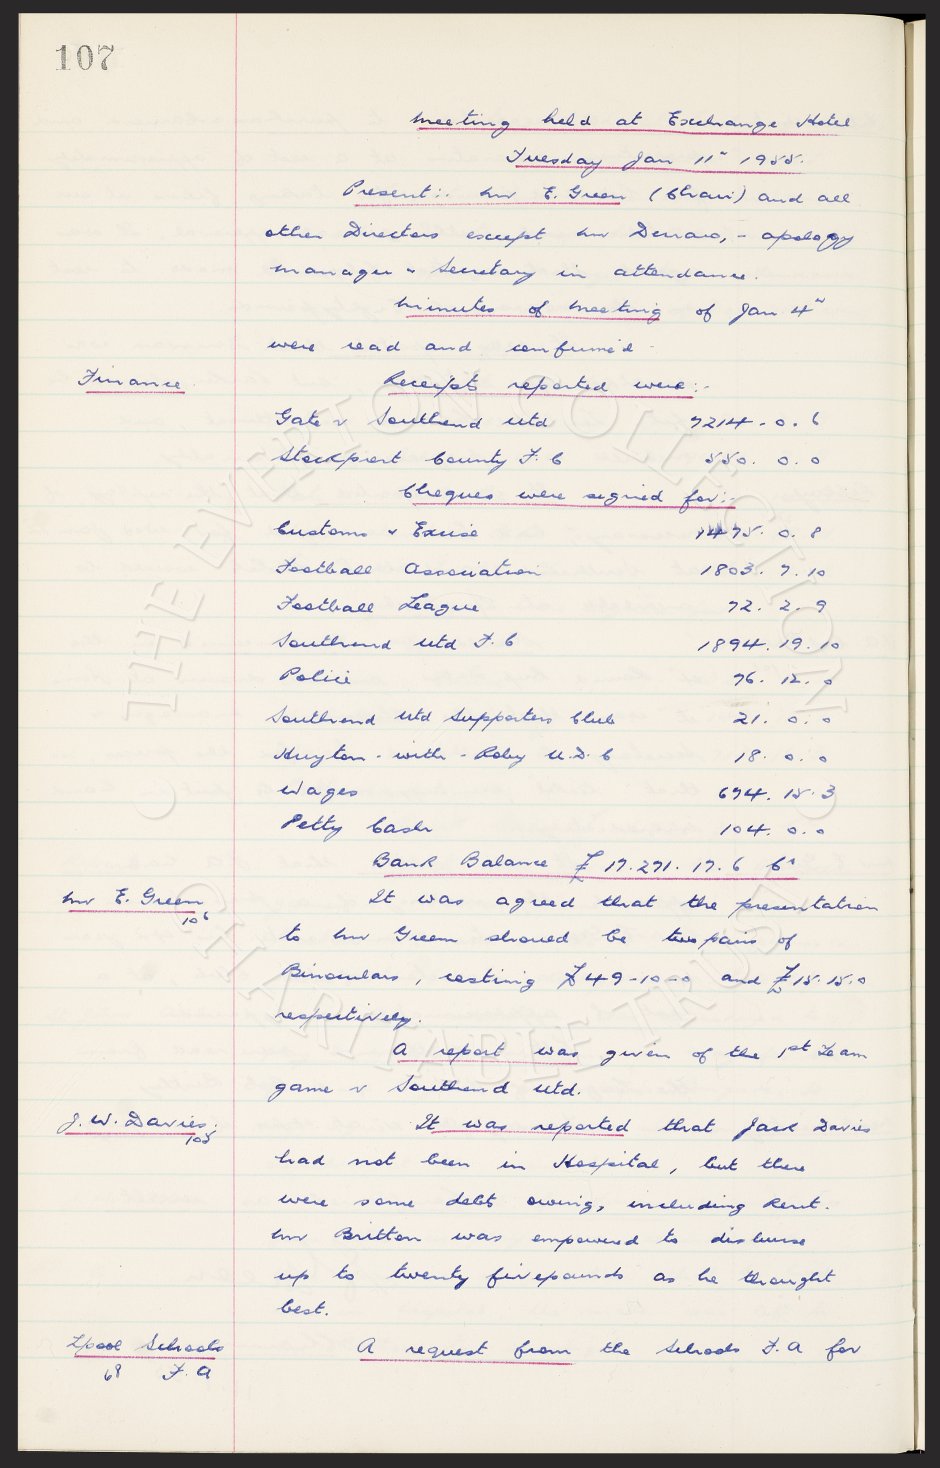 107
Meeting held at Exchange Hotel
Tuesday Jan 11" 1955.
Present:- Mr E. Green (Chair) and all
other Directors except Mr Dewar, - apology
Manager & Secretary in attendance.
Minutes of Meeting of Jan 4"
were read and confirmed
Finance
Receipts reported were:-
Gate v Southend Utd 7214. 0. 6
Stockport County F.C 550. 0. 0
Cheques were signed for:-
Customs & Excise 1475. 0. 8
Football Association 1803. 7. 10
Football League 72. 2. 9
Southend Utd F.C 1894. 19. 10
Police 76. 12. 0
Southend Utd Supporters Club 21. 0. 0
Huyton - with - Roby U.D.C 18. 0. 0
Wages 694. 15. 3
Petty Cash 104. 0. 0
Bank Balance £17.271. 17. 6 Cr
Mr E. Green
106
It was agreed that the presentation
to Mr Green should be two pairs of
Binoculars, costing £49-10-0 and £15.15.0
respectively.
A report was given of the 1st Team
game v Southend Utd.
J. W. Davies.
105
It was reported that Jack Davies
had not been in Hospital, but there
were some debts owing, including Rent.
Mr Britton was empowered to disburse
up to twenty five pounds as he thought
best.
Lpool Schools
68 F.A
A request from the Schools F.A for
THE EVERTON COLLECTION
CHARITABLE TRUST